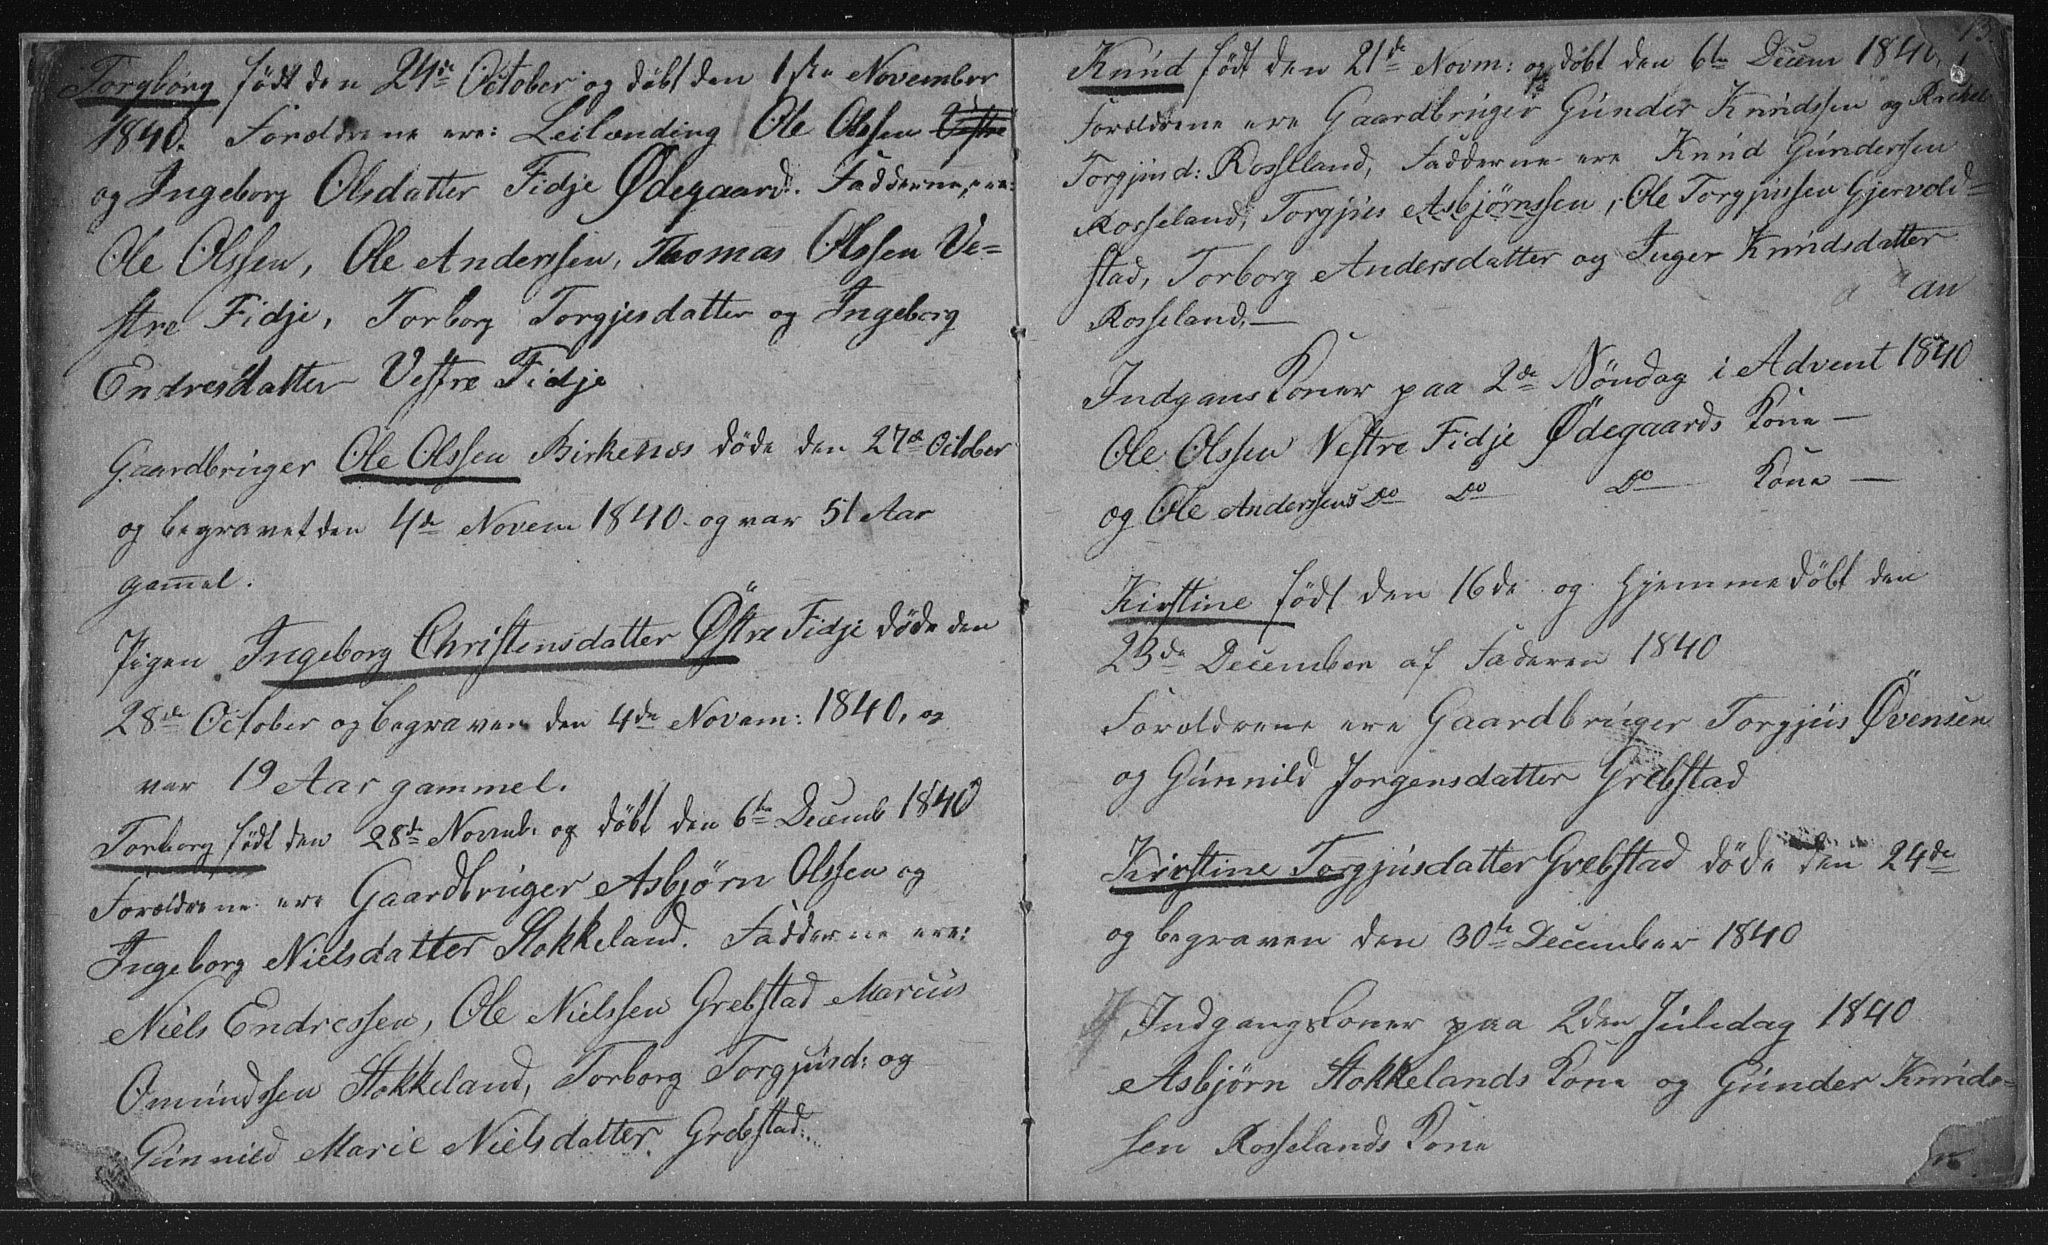 Torgborg født den 24de October og døbt den 1ste November
1840. Forældrene ere: Leilænding Ole Olssen Vestre
og Ingeborg Olsdatter Fidje Ødegaard. Fadderne ere:
Ole Olssen, Ole Anderssen, Thomas Olssen Ve=
stre Fidje, Torborg Torgjesdatter og Ingeborg
Endresdatter Vestre Fidje
Gaardbruger Ole Olssen Birkenes døde den 27de October
og begravet den 4de Novem 1840. og var 51 Aar
gam̄el.
Pigen Ingeborg Christensdatter Østre Fidje døde den
28de October og begraven den 4de Novem: 1840, og
var 19 Aar gammel.
Torborg født den 28de Novemb. og døbt den 6te Decemb 1840
Forældrene ere Gaardbruger Asbjørn Olssen og
Ingeborg Nielsdatter Stokkeland. Fadderne ere:
Niels Endressen, Ole Nielssen Grebstad Marcus
Omundssen Stokkeland, Torborg Torgjusd: og
Gunnild Marie Nielsdatter. Grebstad.
13.
Knud født den 21de Novm: og døbt den 6te Decem 1840.
Forældrene ere Gaardbruger Gunder Knudssen og Rachel
Torgjusd: Rosseland, Fadderne ere Knud Gunderssen
Rosseland, Torgjus Asbjørnssen, Ole Torgjussen Gjervold=
stad, Torborg Andersdatter og Inger Knudsdatter
Rosseland.—
an
Indgangskoner paa 2de Søndag i Advent 1840
Ole Olssen Vestre Fidje Ødegaards Kone —
og Ole Anderssens Do Do Do Kone —
Kirstine født den 16de og hjemmedøbt den
23de December af Faderen 1840
Forældrene ere Gaardbruger Torgjus Øvensen
og Gunnild Jorgensdatter Grebstad
Kirstine Torgjusdatter Grebstad døde den 24de
og begraven den 30te December 1840
Indgangskoner paa 2den Juledag 1840
Asbjørn Stokkelands Kone og Gunder Knuds=
sen Rosselands Kone